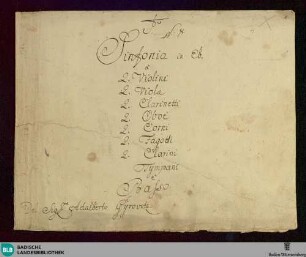 Sinfonia in Eb.
a
2. Violini
2. Viola
2. Clarinetti
2. Oboe
2. Corni
2. Fagotti
2. Clarini
Tympani
e
Basso
Del Sigl. Adalberto Gyrovetz
BLB
BADISCHE
LANDESBIBLIOTHEK